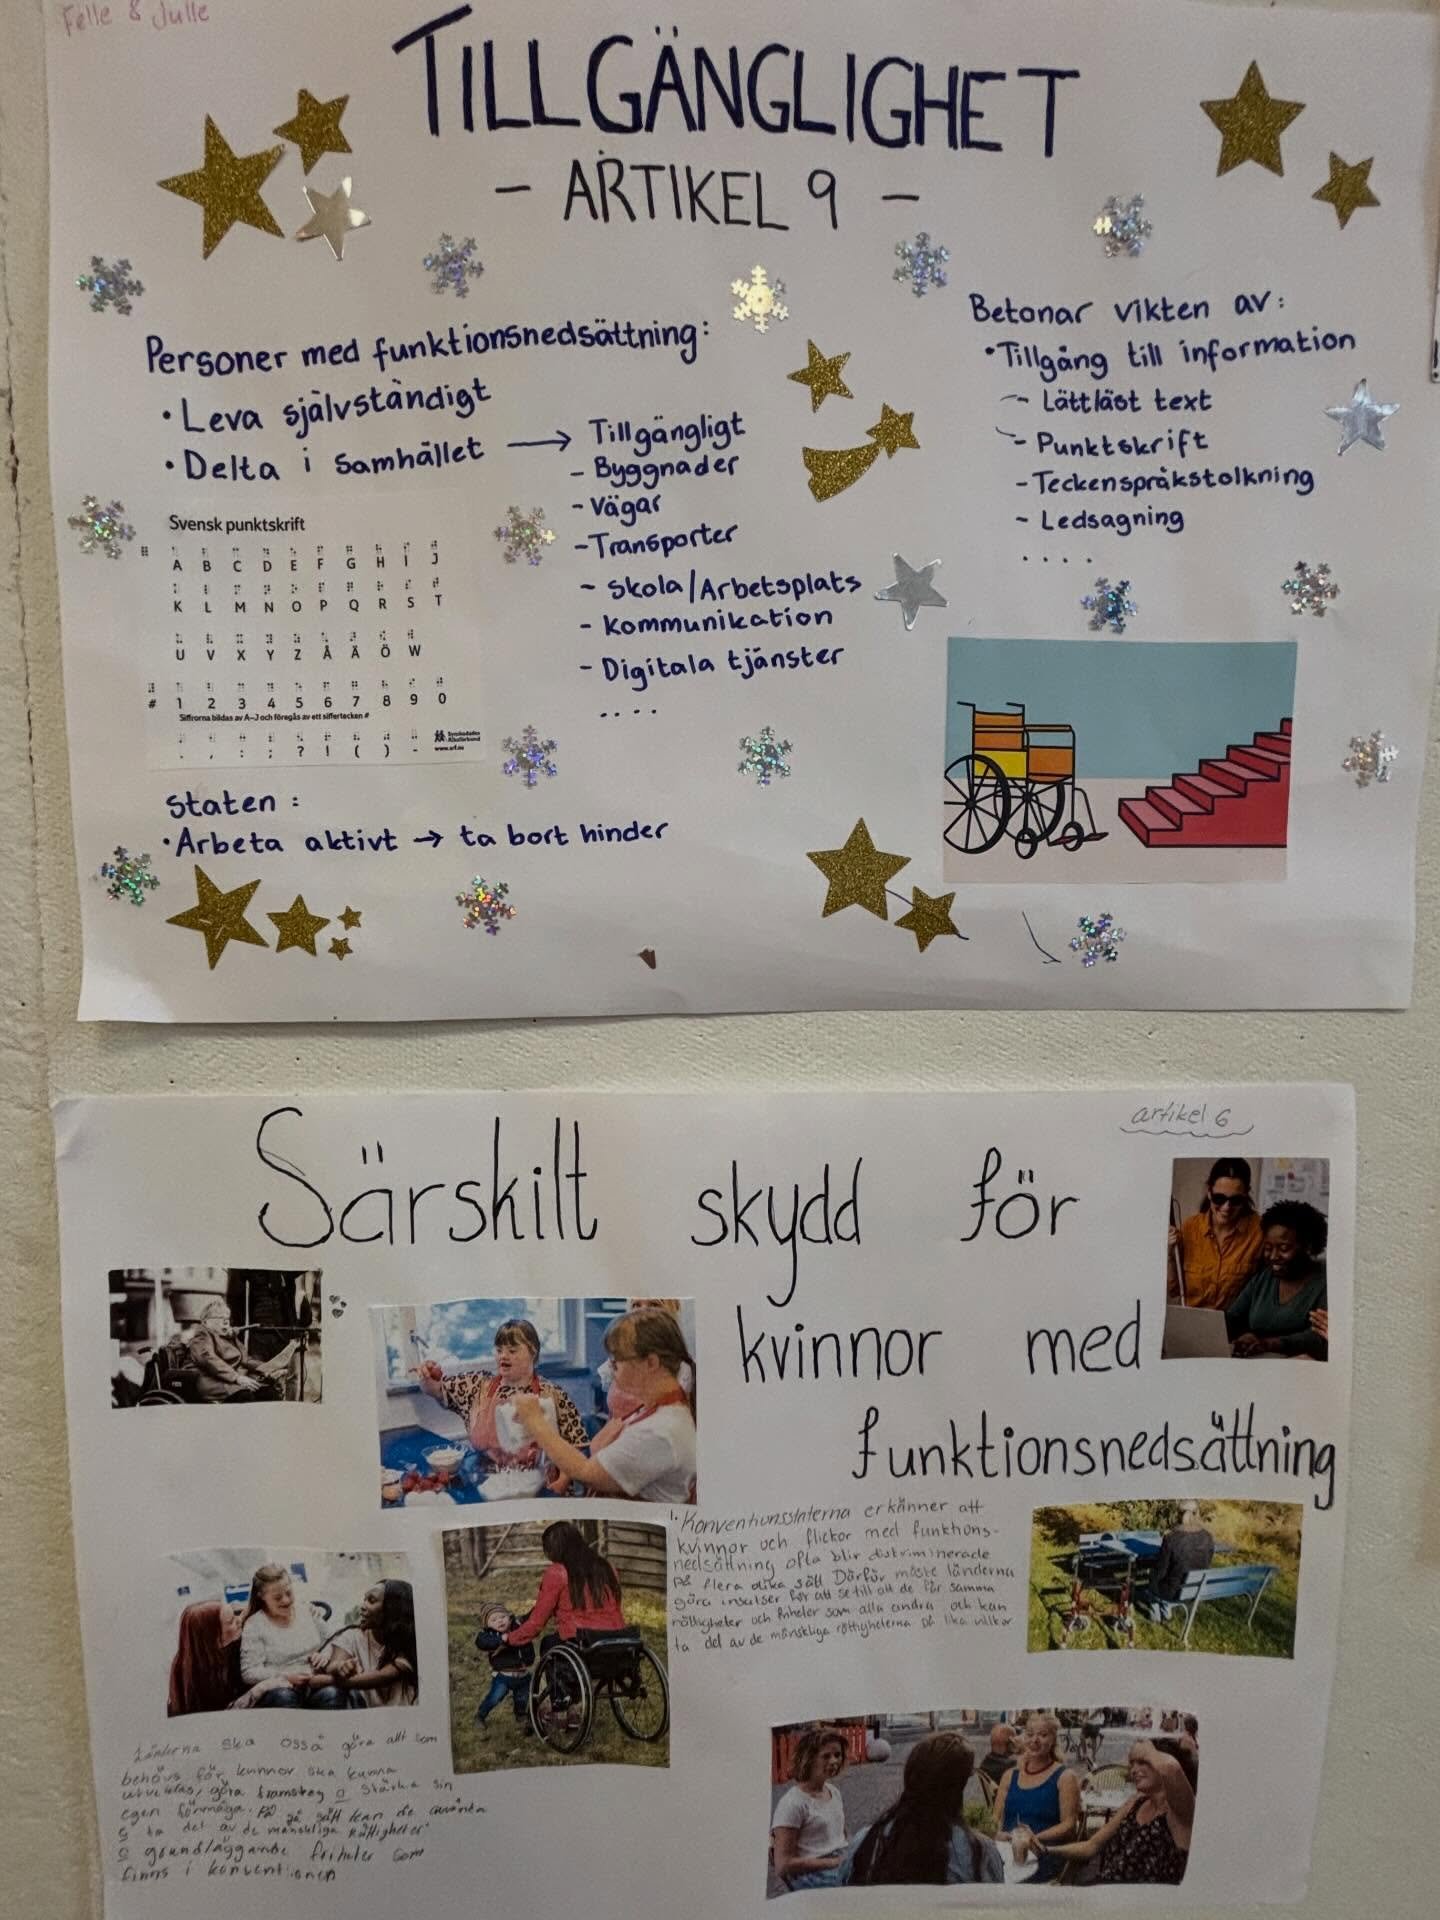 Felle & Julle
TILLGÄNGLIGHET
- ARTIKEL 9 -
Personer med funktionsnedsättning:
• Leva självständigt
• Delta i samhället → Tillgängligt
- Byggnader
- Vägar
- Transporter
- Skola/Arbetsplats
- Kommunikation
- Digitala tjänster
....
Betonar vikten av:
• Tillgång till information
- Lättläst text
- Punktskrift
- Teckenspråkstolkning
- Ledsagning
....
Svensk punktskrift
A B C D E F G H I J
K L M N O P Q R S T
U V X Y Z Å Ä Ö W
# 1 2 3 4 5 6 7 8 9 0
Siffrorna bildas av A–J och föregås av ett siffertecken #
. , : ; ? ! ( ) -
www.srf.nu
Staten:
• Arbeta aktivt → ta bort hinder
artikel 6
Särskilt skydd för
kvinnor med
funktionsnedsättning
1. Konventionsstaterna erkänner att
kvinnor och flickor med funktions-
nedsättning ofta blir diskriminerade
på flera olika sätt Därför måste länderna
göra insatser för att se till att de får samma
rättigheter och friheter som alla andra och kan
ta del av de mänskliga rättigheterna på lika villkor
Länderna ska också göra allt som
behövs för kvinnor ska kunna
utvecklas, göra framsteg o stärka sin
egen förmåga. På så sätt kan de använda
o ta del av de mänskliga rättigheter
o grundläggande friheter som
finns i konventionen